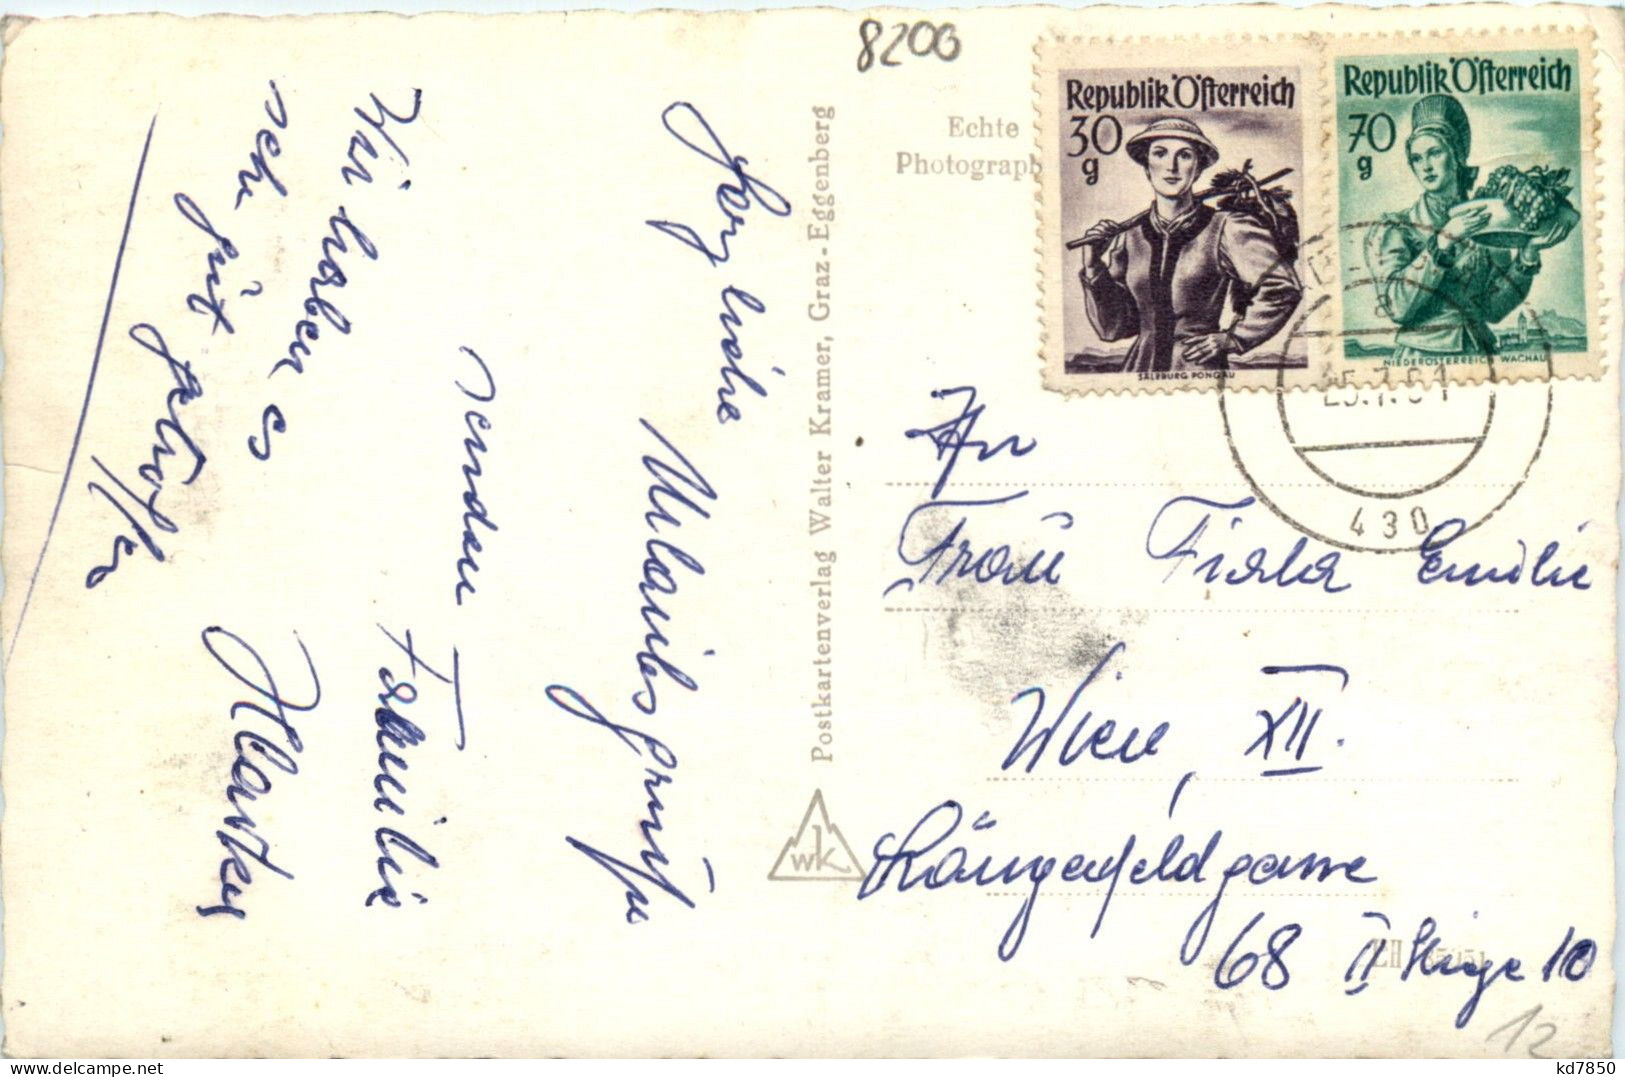 8200
Echte
Photograph
Republik Österreich
30
g
SALZBURG PONGAU
Republik Österreich
70
g
NIEDERÖSTERREICH WACHAU
a
25.7.61
430
Postkartenverlag Walter Kramer, Graz-Eggenberg
wk
Herzliche
Urlaubsgrüße
senden
Familie
Wir haben es
sehr gut
An
Frau Fiala Emilie
Wien, XII.
Längenfeldgasse
68 II Stiege 10
12
kd7850